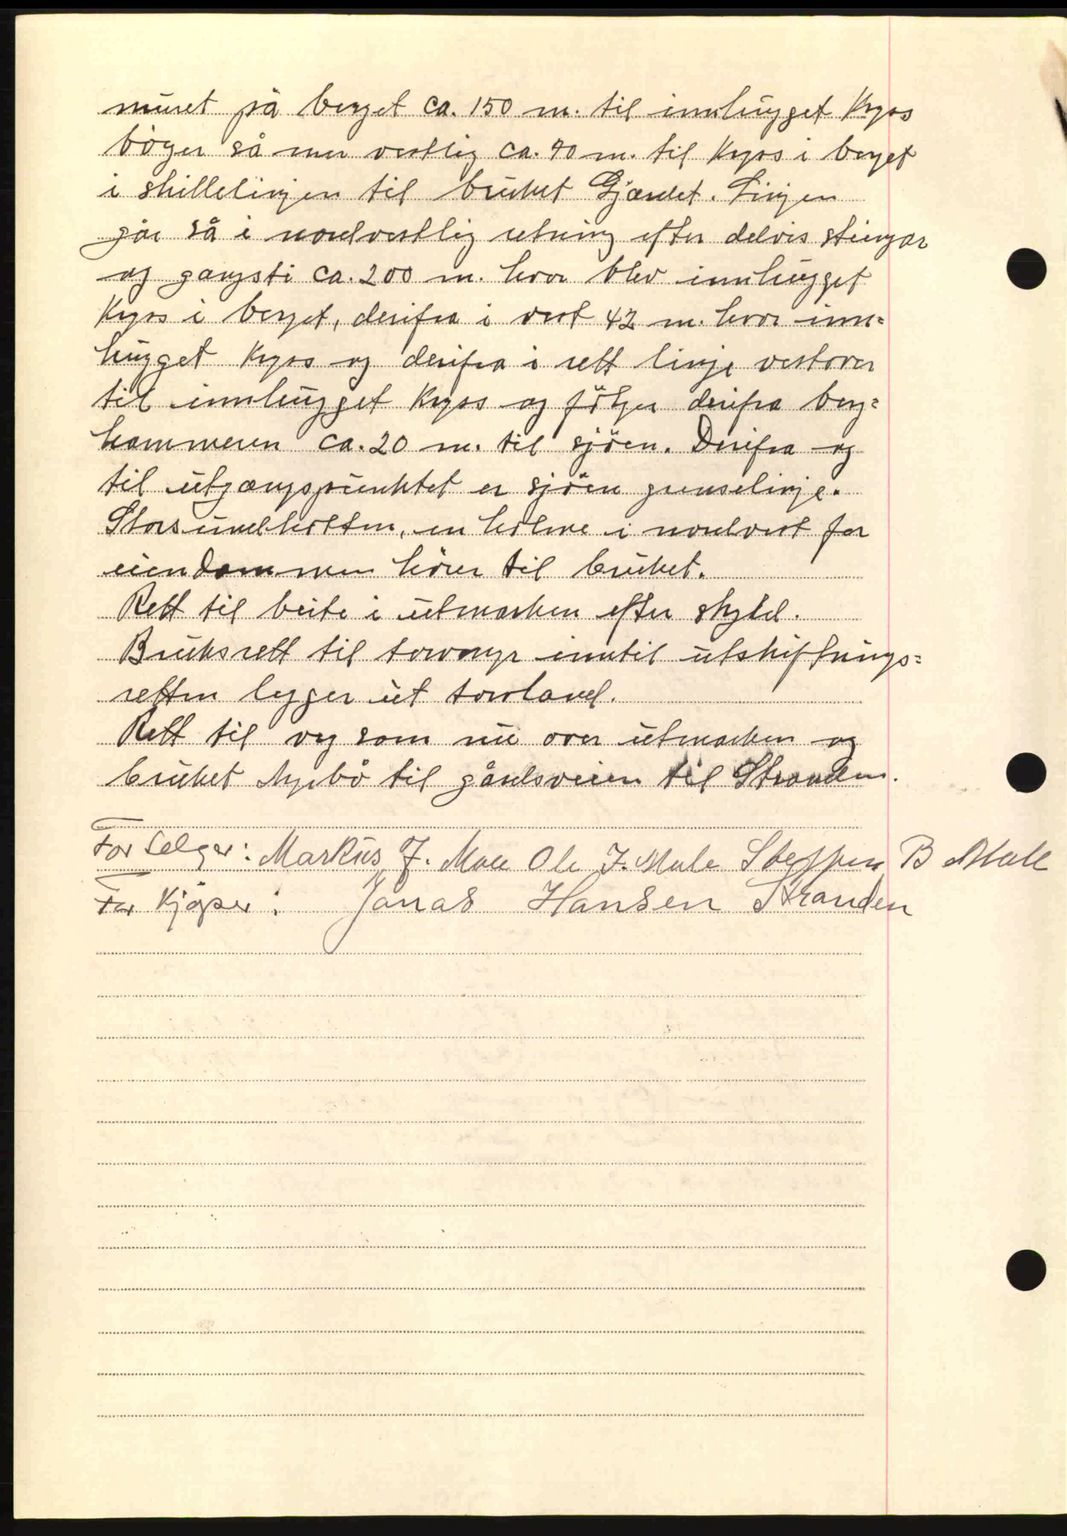 muret på berget ca. 150 m. til innhugget Kryss
böyer så mer vestlig ca. 40 m. til Kryss i berget
i skillelinjen til bruket Gjærdet. Linjen
går så i nordvestlig retning efter delvis steingar
og gangsti ca. 200 m. hvor blev innhugget
Kryss i berget, derifra i vest 42 m. hvor inn=
hugget Kryss og derifra i rett linje vestover
til innhugget Kryss og fölger derifra berg=
hammeren ca. 20 m. til sjöen. Derifra og
til utgangspunktet er sjöen grenselinje.
Storsundholmen, en holme i nordvest for
eiendommen hörer til bruket.
Rett til beite i utmarken efter skyld.
Bruksrett til torvmyr inntil utskiftnings=
retten legger ut torvland.
Rett til veg som nu over utmarken og
bruket Nybö til gårdsveien til Stranden.
For Selger: Markus J. Mule Ole J. Mule Steffen B Mule
For Kjöper: Jonas Hansen Stranden